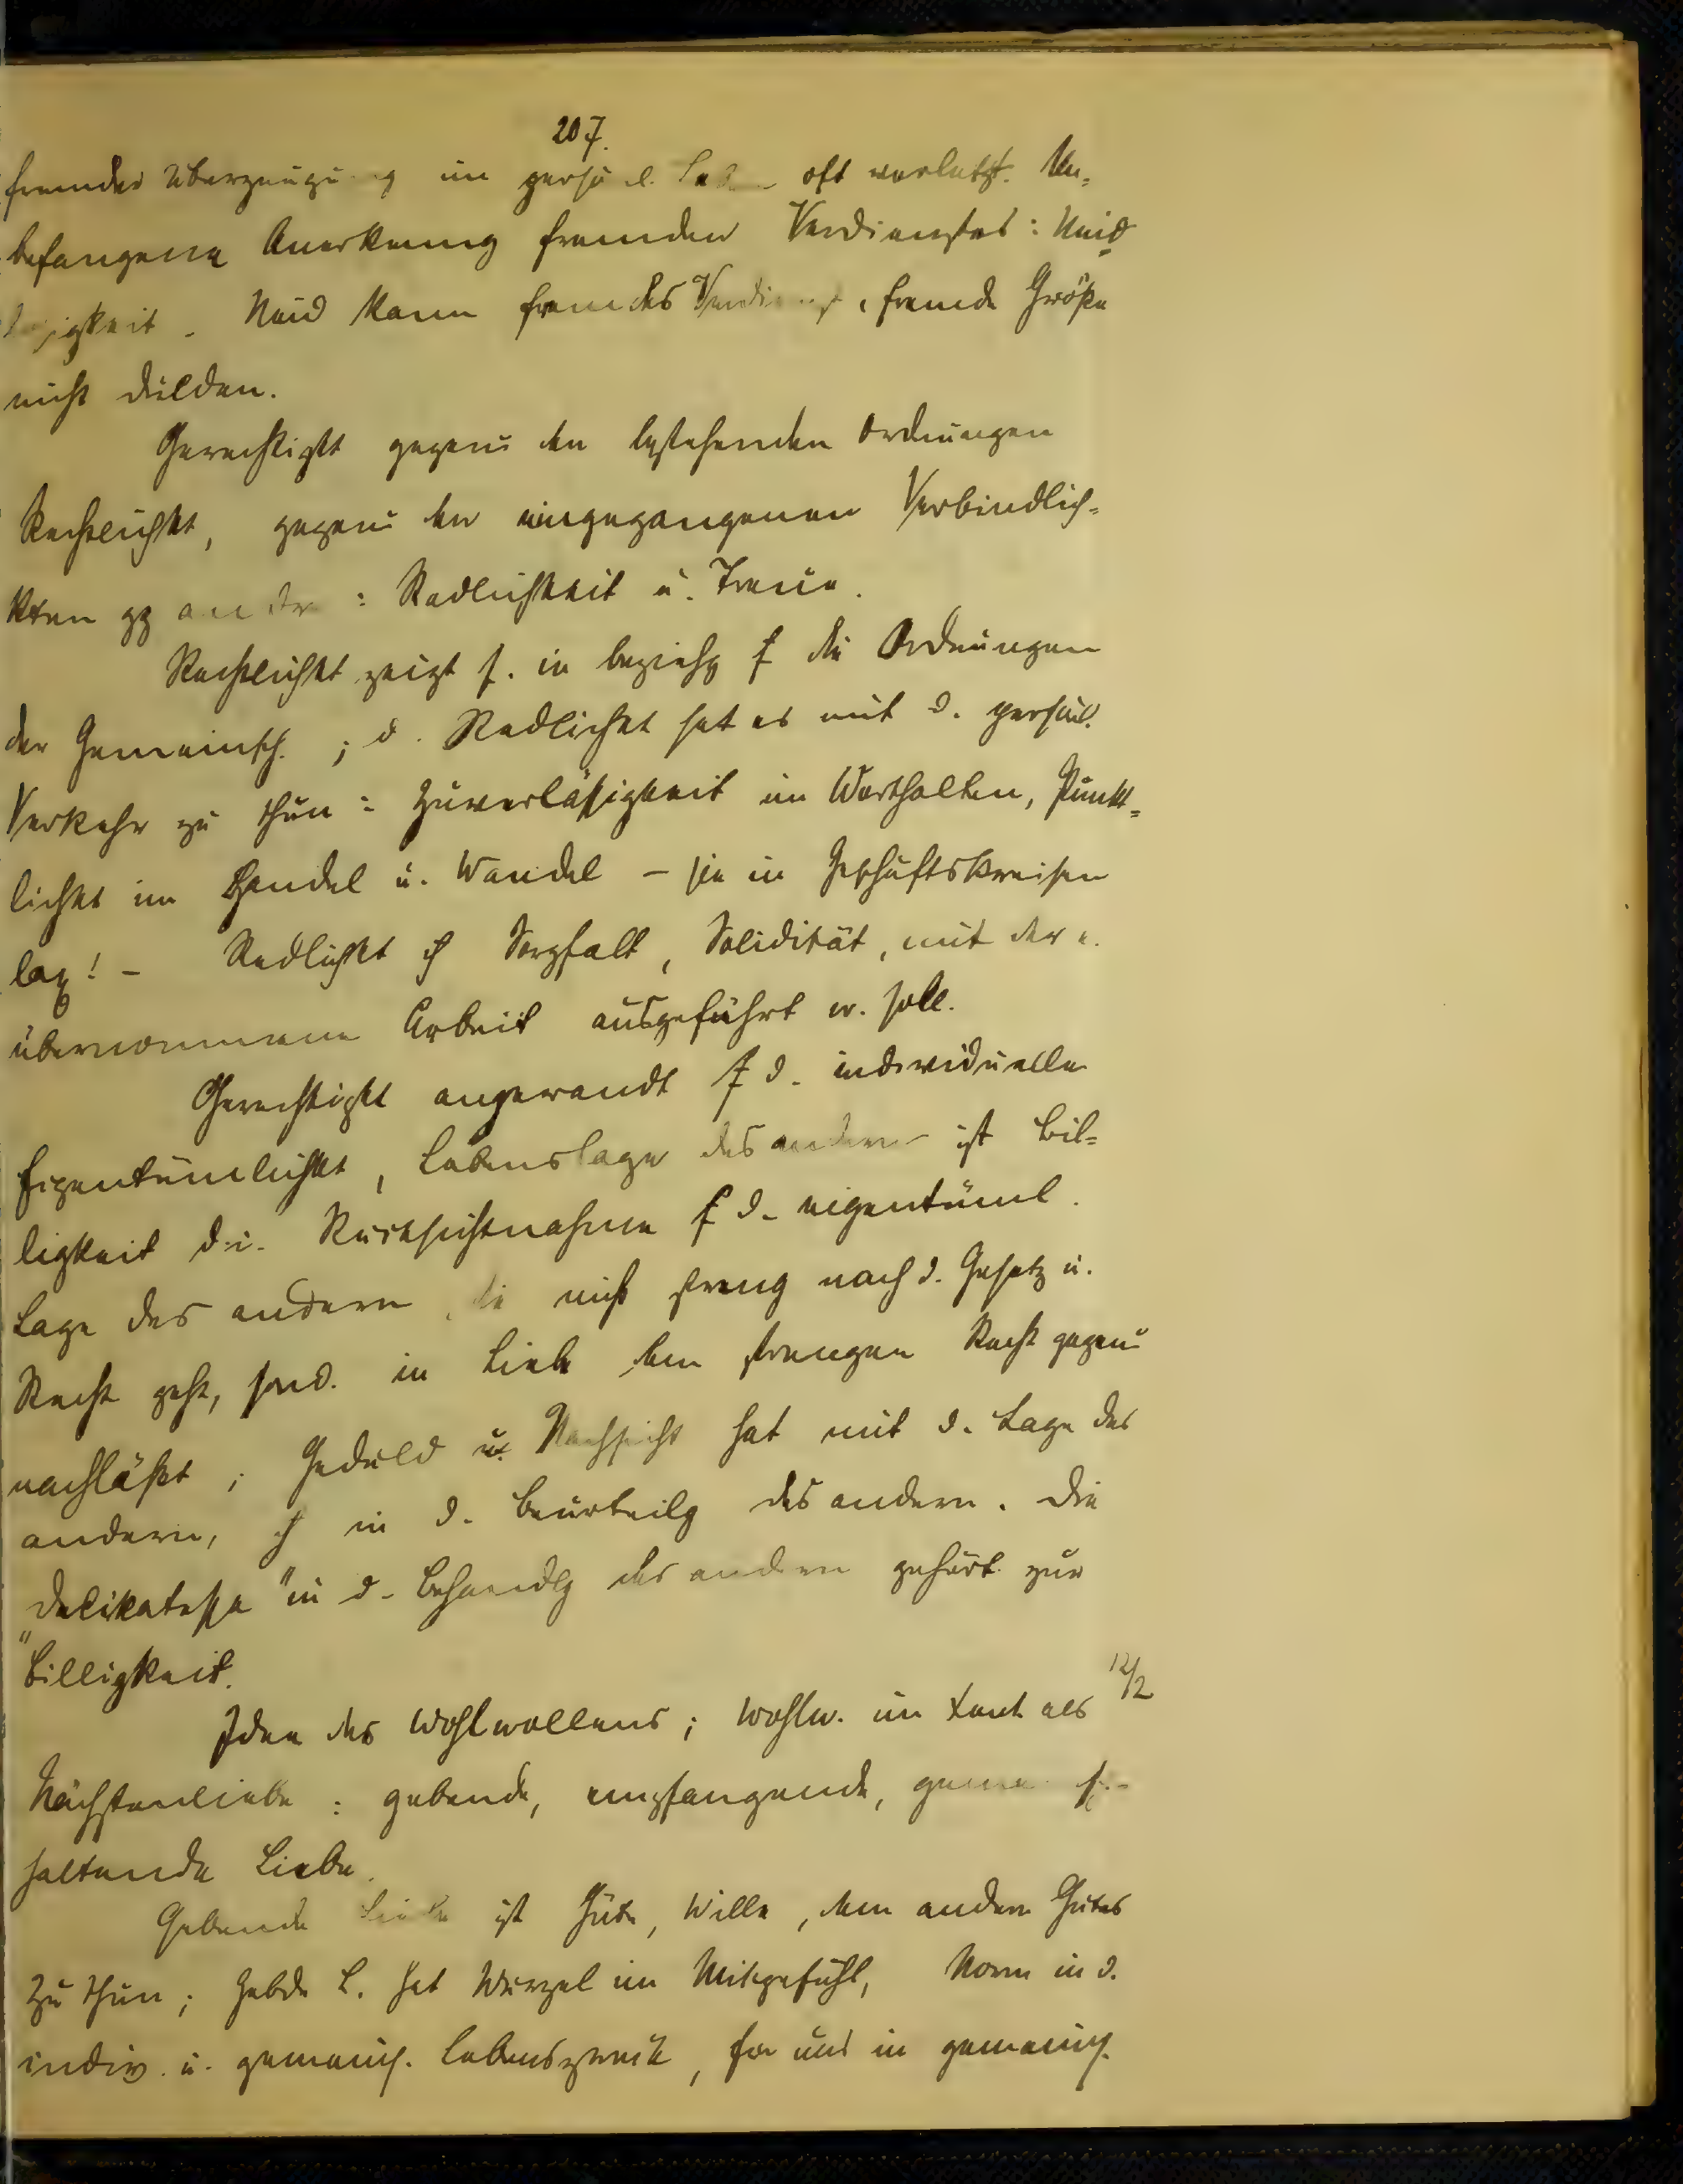 207.
fremder Überzeugung im persönl. Leben oft verletzt. Un-
befangene Anerkenng fremden Verdienstes: Neid-
losigkeit. Neid kann fremdes Verdienst, fremde Größe
nicht dulden.
Gerechtigkt gegenü den bestehenden Ordnungen
Rechtlichkt, gegenü den eingegangenen Verbindlich-
kten gg andre: Redlichkeit u. Treue.
Rechtlichkt zeigt s. in beziehg f die Ordnungen
der Gemeinsch.; d. Redlichkt hat es mit d. persönl.
Verkehr zu thun: Zuverläßigkeit im Worthalten, Pünkt-
lichkt im Handel u. Wandel – sie in Geschäftskreisen
lax! – Redlichkt ist Sorgfalt, Solidität, mit der e.
übernommene Arbeit ausgeführt w. soll.
Gerechtigkt angewandt f d. individuelle
Eigentümlichkt, Lebenslage des andern ist Bil-
ligkeit d.i. Rücksichtnahme f d. eigentüml.
Lage des andern, die nicht streng nach d. Gesetz u.
Recht geht, sond. in Liebe dem strengen Recht gegenü
nachläßt; Geduld u. Nachsicht hat mit d. Lage des
andern, in d. Beurteilg des andern. Die
„Delikatesse" in d. Behandlg des andern gehört zur
Billigkeit.
12/2
Idee des Wohlwollens; Wohlw. im als
Nächstenliebe: gebende, empfangende,
haltende Liebe.
Gebende Liebe ist Güte, Wille, dem andern Gutes
zu thun; Gebde L. hat Wurzel im Mitgefühl, Norm in d.
indiv. u. gemeins. Lebenszweck, der uns in gemeins.